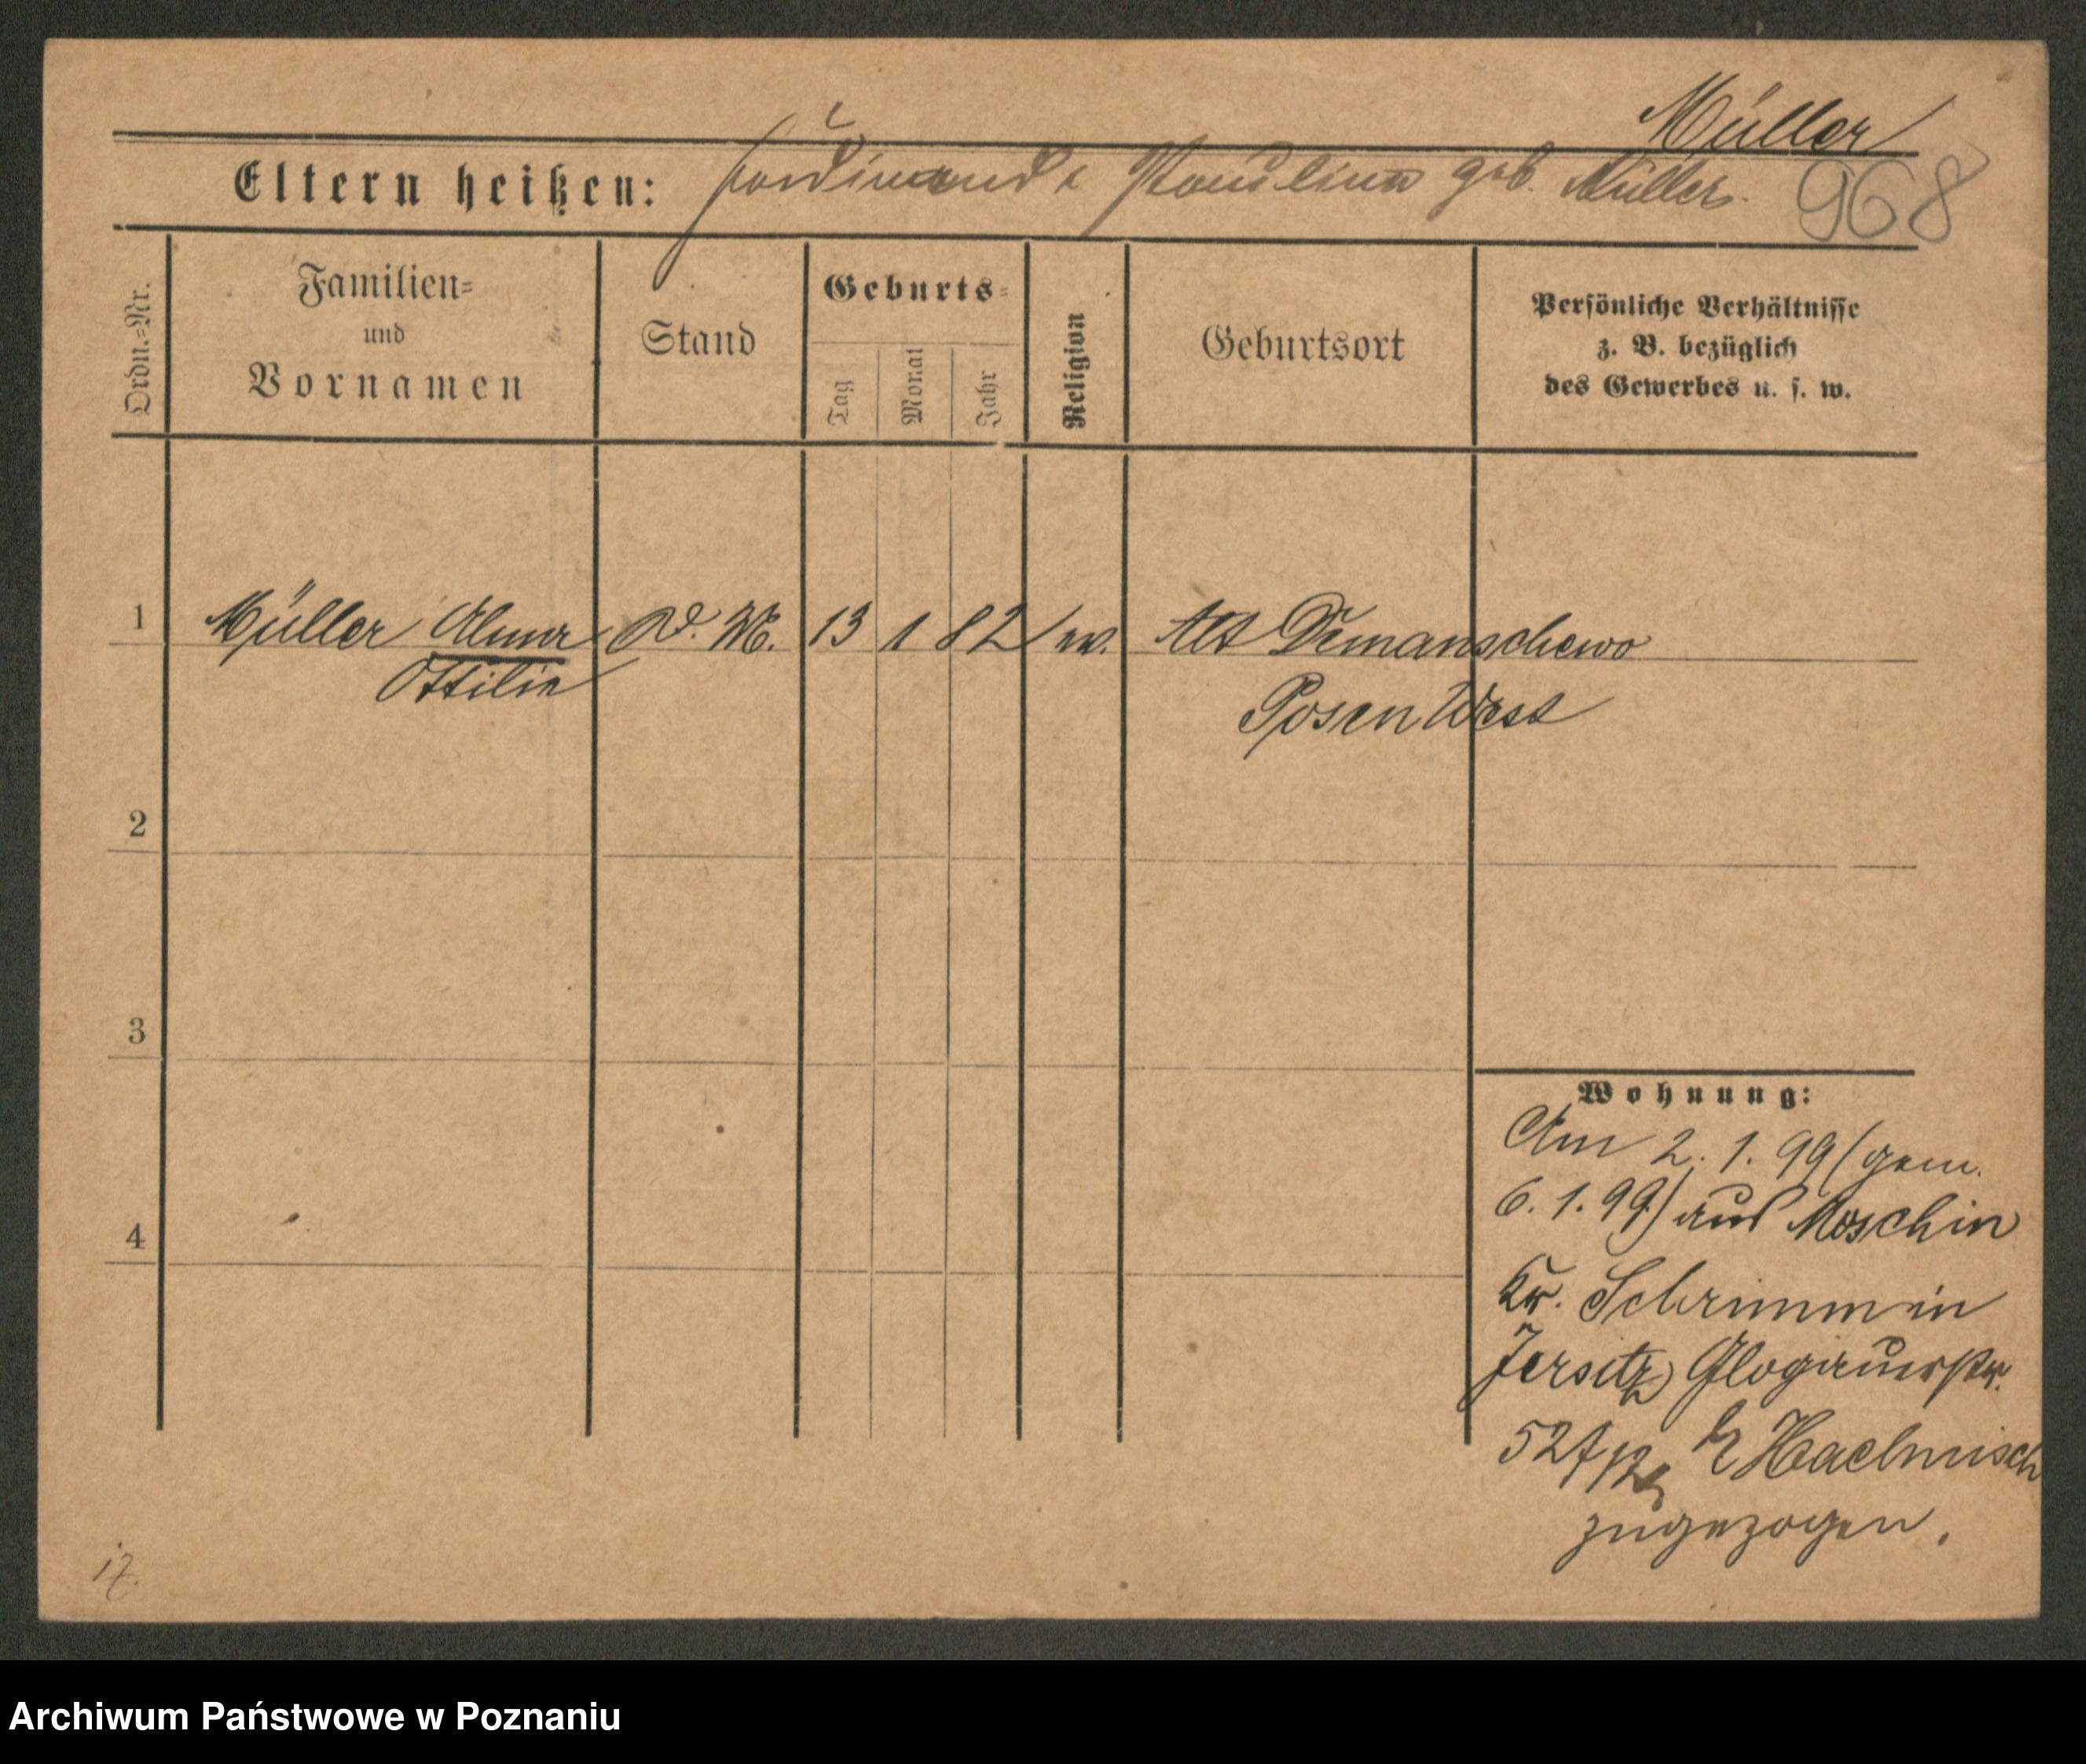 Müller
Eltern heißen: Ferdinand & Pauline geb. Müller.
968
Ordn.=Nr.
Familien=
und
Vornamen
Stand
Geburts=
Tag
Monat
Jahr
Religion
Geburtsort
Persönliche Verhältnisse
z. B. bezüglich
des Gewerbes u. s. w.
1 Müller Alma D. M. 13 1 82 ev. Alt Dimanschewo
Ottilie
Posen West
2
3
4
Wohnung:
Am 2. 1. 99 (gem.
6. 1. 99) aus Moschin
Kr. Schrimm in
Jersitz Glogauerstr.
52
zugezogen.
Archiwum Państwowe w Poznaniu